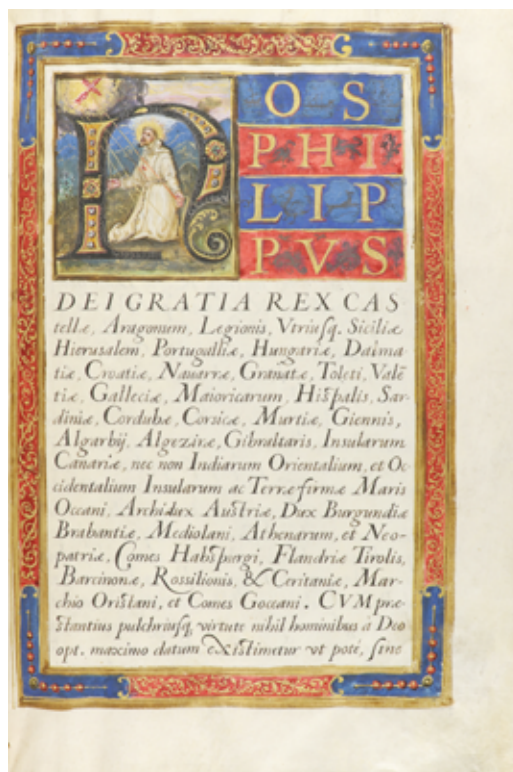 NOS
PHI
LIP
PVS
DEI GRATIA REX CAS
tellæ, Aragonum, Legionis, Vtriusq. Siciliæ
Hierusalem, Portugalliæ, Hungariæ, Dalma
tiæ, Croatiæ, Nauarræ, Granatæ, Toleti, Valẽ
tiæ, Galleciæ, Maioricarum, Hispalis, Sar-
diniæ, Cordubæ, Corsicæ, Murtiæ, Giennis,
Algarbij, Algeziræ, Gibraltaris, Insularum
Canariæ, nec non Indiarum Orientalium, et Oc-
cidentalium Insularum ac Terræ firmæ Maris
Occani, Archidux Austriæ, Dux Burgundiæ
Brabantiæ, Mediolani, Athenarum, et Neo-
patriæ, Comes Habspurgi, Flandriæ Tirolis,
Barcinonæ, Rossilionis, & Ceritaniæ, Mar-
chio Oristani, et Comes Goceani. CVM præ-
stantius pulchriusq, virtute nihil hominibus à Deo
opt. maximo datum eXistimetur vt potè, sine